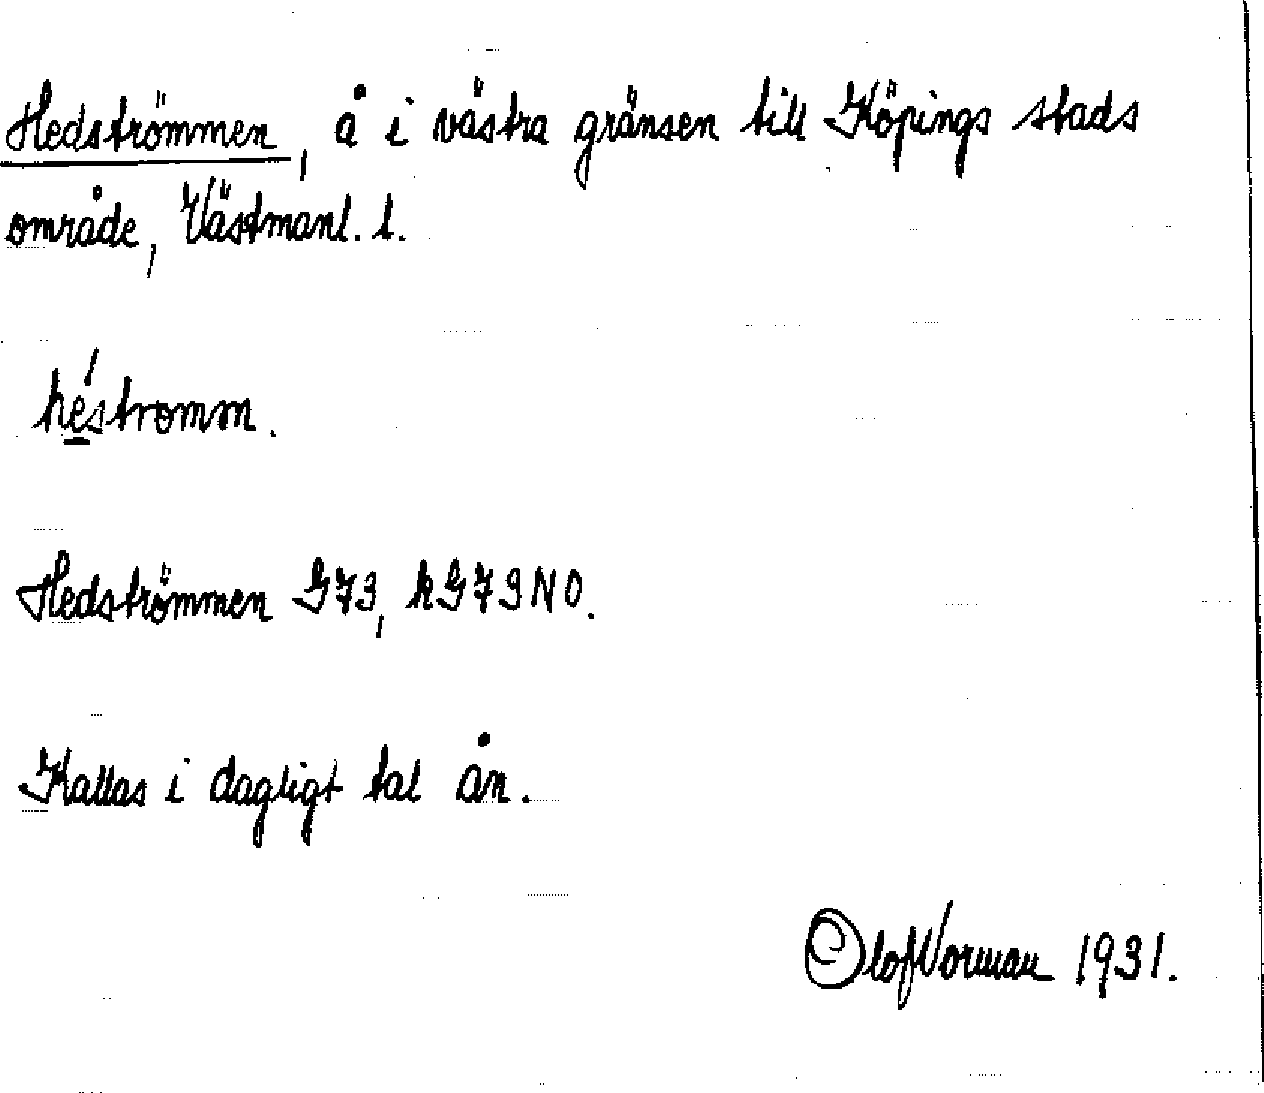 Hedströmmen, å i västra gränsen till Köpings stads
område, Västmanl. l.
hé̱stromm.
Hedströmmen G73, kG73NO.
Kallas i dagligt tal ån.
Olof Vorman 1931.